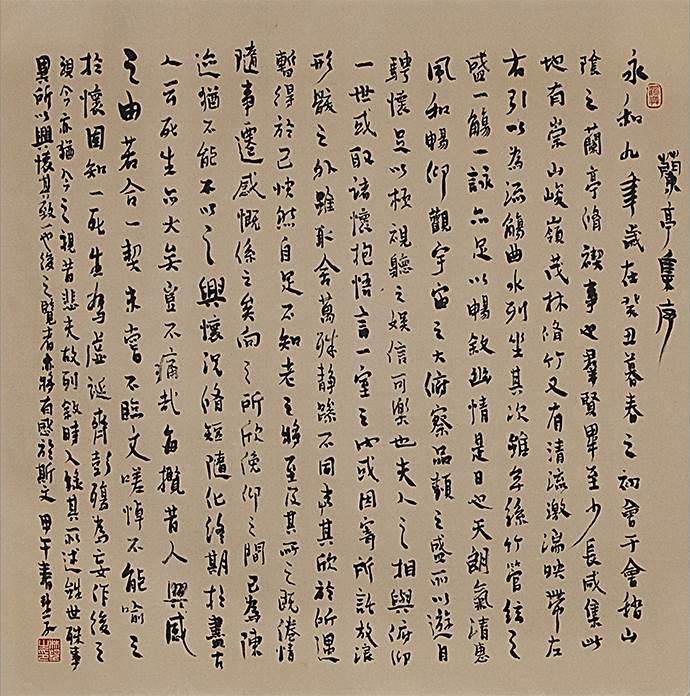 蘭亭集序
永和九年歲在癸丑暮春之初會于會稽山
陰之蘭亭脩禊事也羣賢畢至少長咸集此
地有崇山峻嶺茂林脩竹又有清流激湍映帶左
右引以為流觴曲水列坐其次雖無絲竹管絃之
盛一觴一詠亦足以暢敘幽情是日也天朗氣清惠
風和暢仰觀宇宙之大俯察品類之盛所以遊目
騁懷足以極視聽之娛信可樂也夫人之相與俯仰
一世或取諸懷抱悟言一室之內或因寄所託放浪
形骸之外雖取舍萬殊静躁不同當其欣於所遇
暫得於己怏然自足不知老之將至及其所之既倦情
隨事遷感慨係之矣向之所欣俛仰之間已為陳
迹猶不能不以之興懷況脩短隨化終期於盡古
人云死生亦大矣豈不痛哉每攬昔人興感
之由若合一契未嘗不臨文嗟悼不能喻之
於懷固知一死生為虛誕齊彭殤為妄作後之
視今亦猶今之視昔悲夫故列敘時人錄其所述雖世殊事
異所以興懷其致一也後之覽者亦將有感於斯文 甲午春